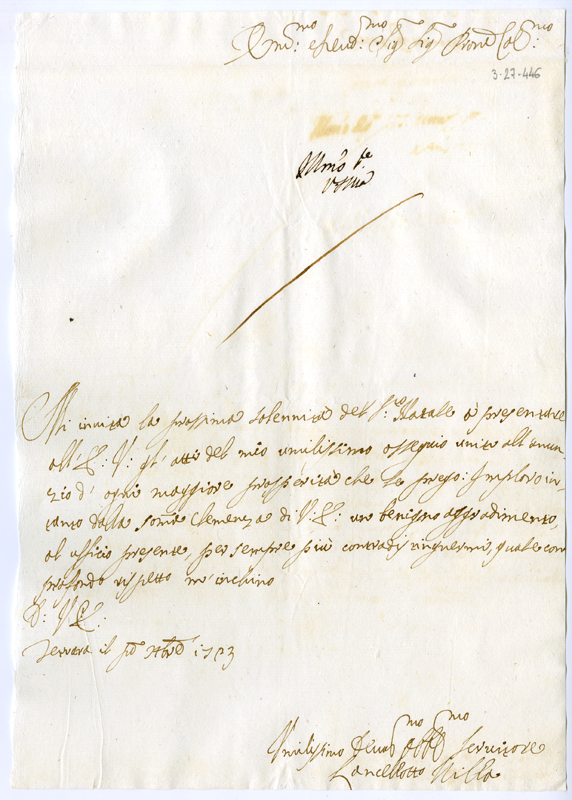 Em:mo e Rev:mo Sig.r Sig.r Prone Col:mo
3-27-446
Mi invita la prossima solennità del S.to Natale à presentare
all' E: V: gl' atti del mio umilissimo ossequio unito all' annun-
zio d' ogni maggiore prosperità che le prego: Imploro in-
tanto dalla somª Clemenza di V: E: un benigno aggradimento,
al ufficio presente per sempre più contradistinguermi, quale con
profondo rispetto m' inchino
D: V: E:
Ferrara il
Umilissimo Servitore
Lancellotto Nilla